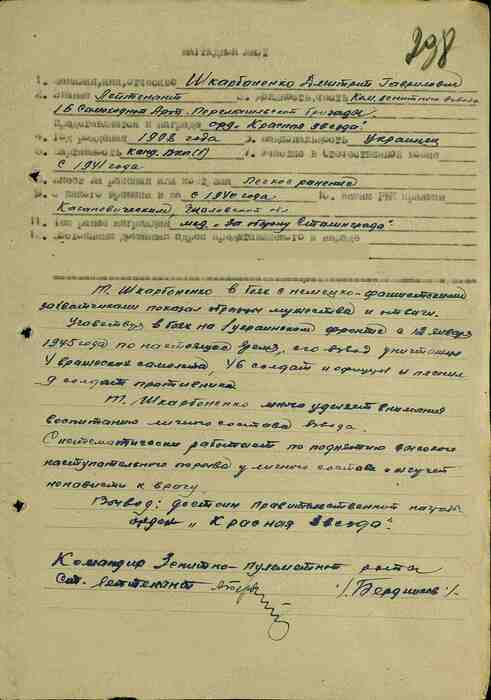 298
НАГРАДНОЙ ЛИСТ
1. Фамилия, имя, отчество Шкарбоненко Дмитрий Гаврилович
2. звание Лейтенант 3. должность, часть Ком. зенитного взвода
16 Самоходная Арт. Бригады
Представляется к награде орд. "Красная звезда"
4. Год рождения 1908 года 5. национальность Украинец
6. партийность канд. ВКП(б) 7. участие в отечественной войне
с 1941 года
8. имеет ли ранения или контузии Легкое ранение
9. с какого времени в КА с 1940 года 10. каким РВК призван
Кагановическим, обл.
11. Чем ранее награжден мед. "За оборону Сталинграда"
12. Постоянный домашний адрес представляемого к награде
Т. Шкарбоненко в боях с немецко-фашистскими
захватчиками показал образцы мужества и отваги.
Участвуя в боях на I украинском фронте с 12 января
1945 года по настоящее время, его взвод уничтожил
4 вражеских самолета, 46 солдат и офицер и пленил
9 солдат противника
Т. Шкарбоненко много уделяет внимания
воспитанию личного состава взвода.
Систематически работает по поднятию высокого
наступательного порыва у личного состава и жгучей
ненависти к врагу
Вывод: достоин правительственной награды
орден "Красная Звезда".
Командир Зенитно-пулеметной роты
Ст. Лейтенант /Бердников/.